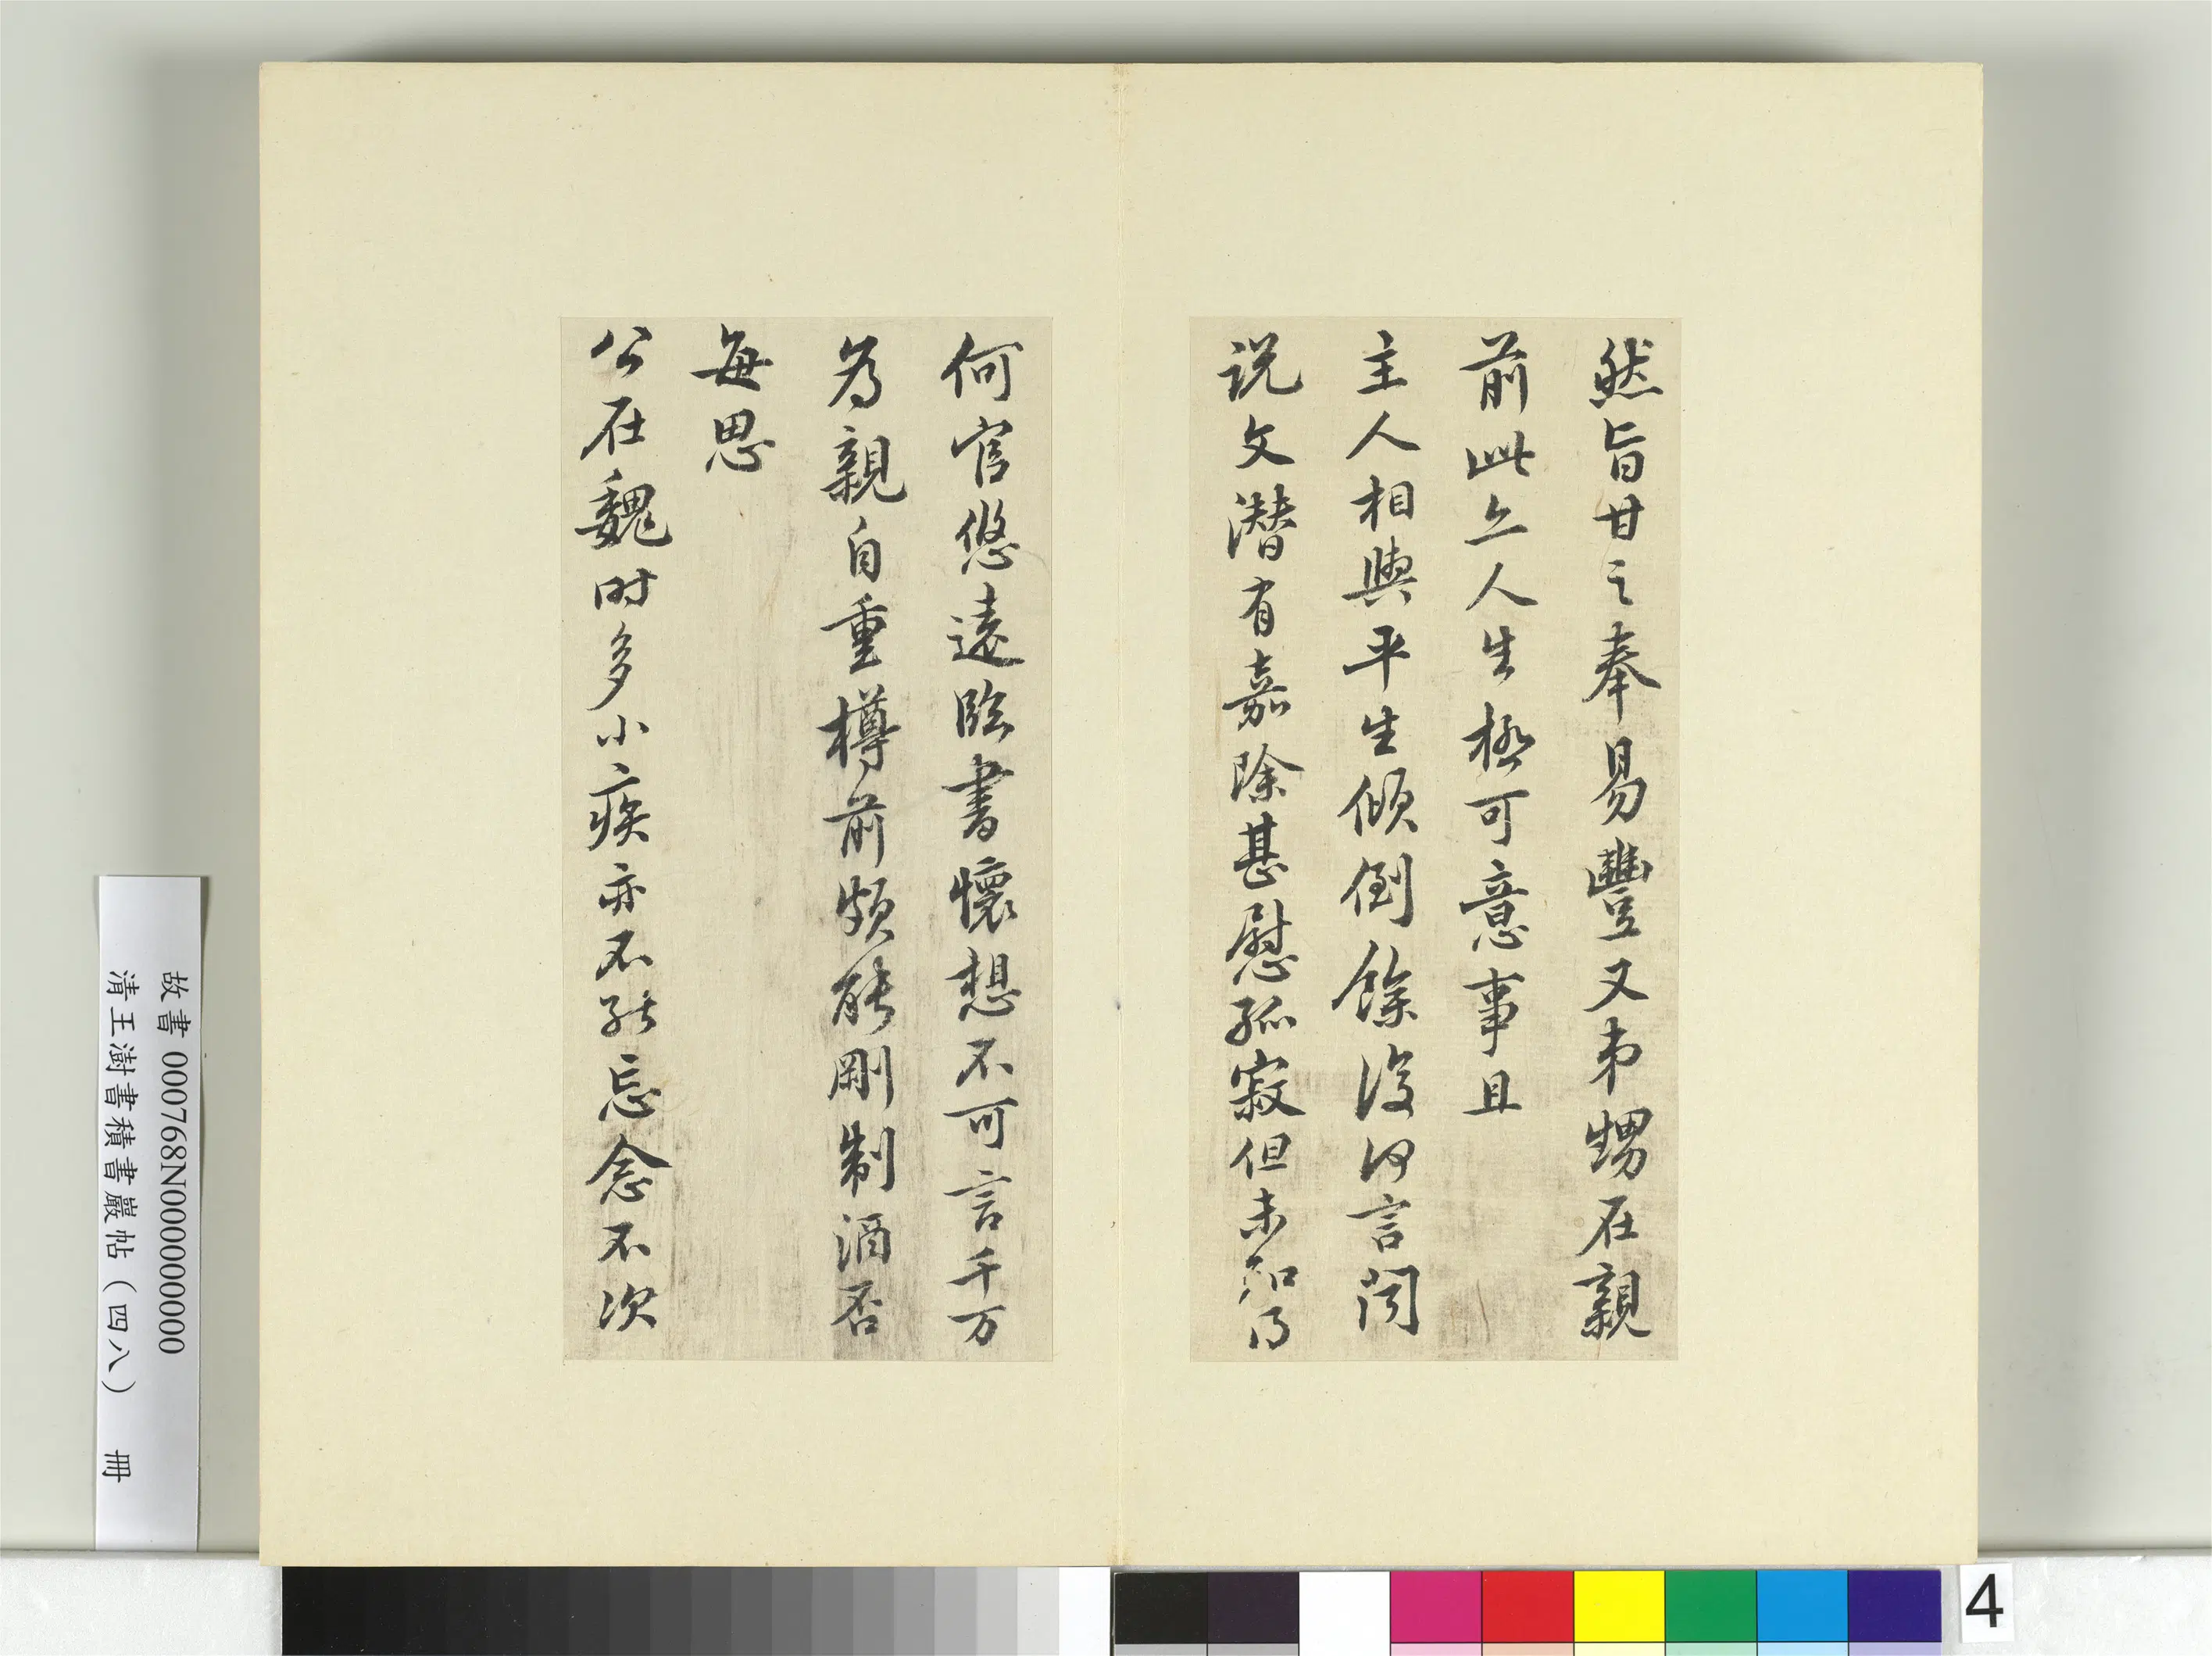 然旨甘之奉易豐又弟甥在親
前此亦人生極可意事且
主人相與平生傾倒餘復何言聞
説文潛有嘉除甚慰孤寂但未知得
何官悠遠臨書懷想不可言千万
為親自重樽前頗能剛制酒否
每思
公在魏時多小疾亦不能忘念不次
故書 000768N000000000
清王澍書積書巖帖（四八） 冊
4